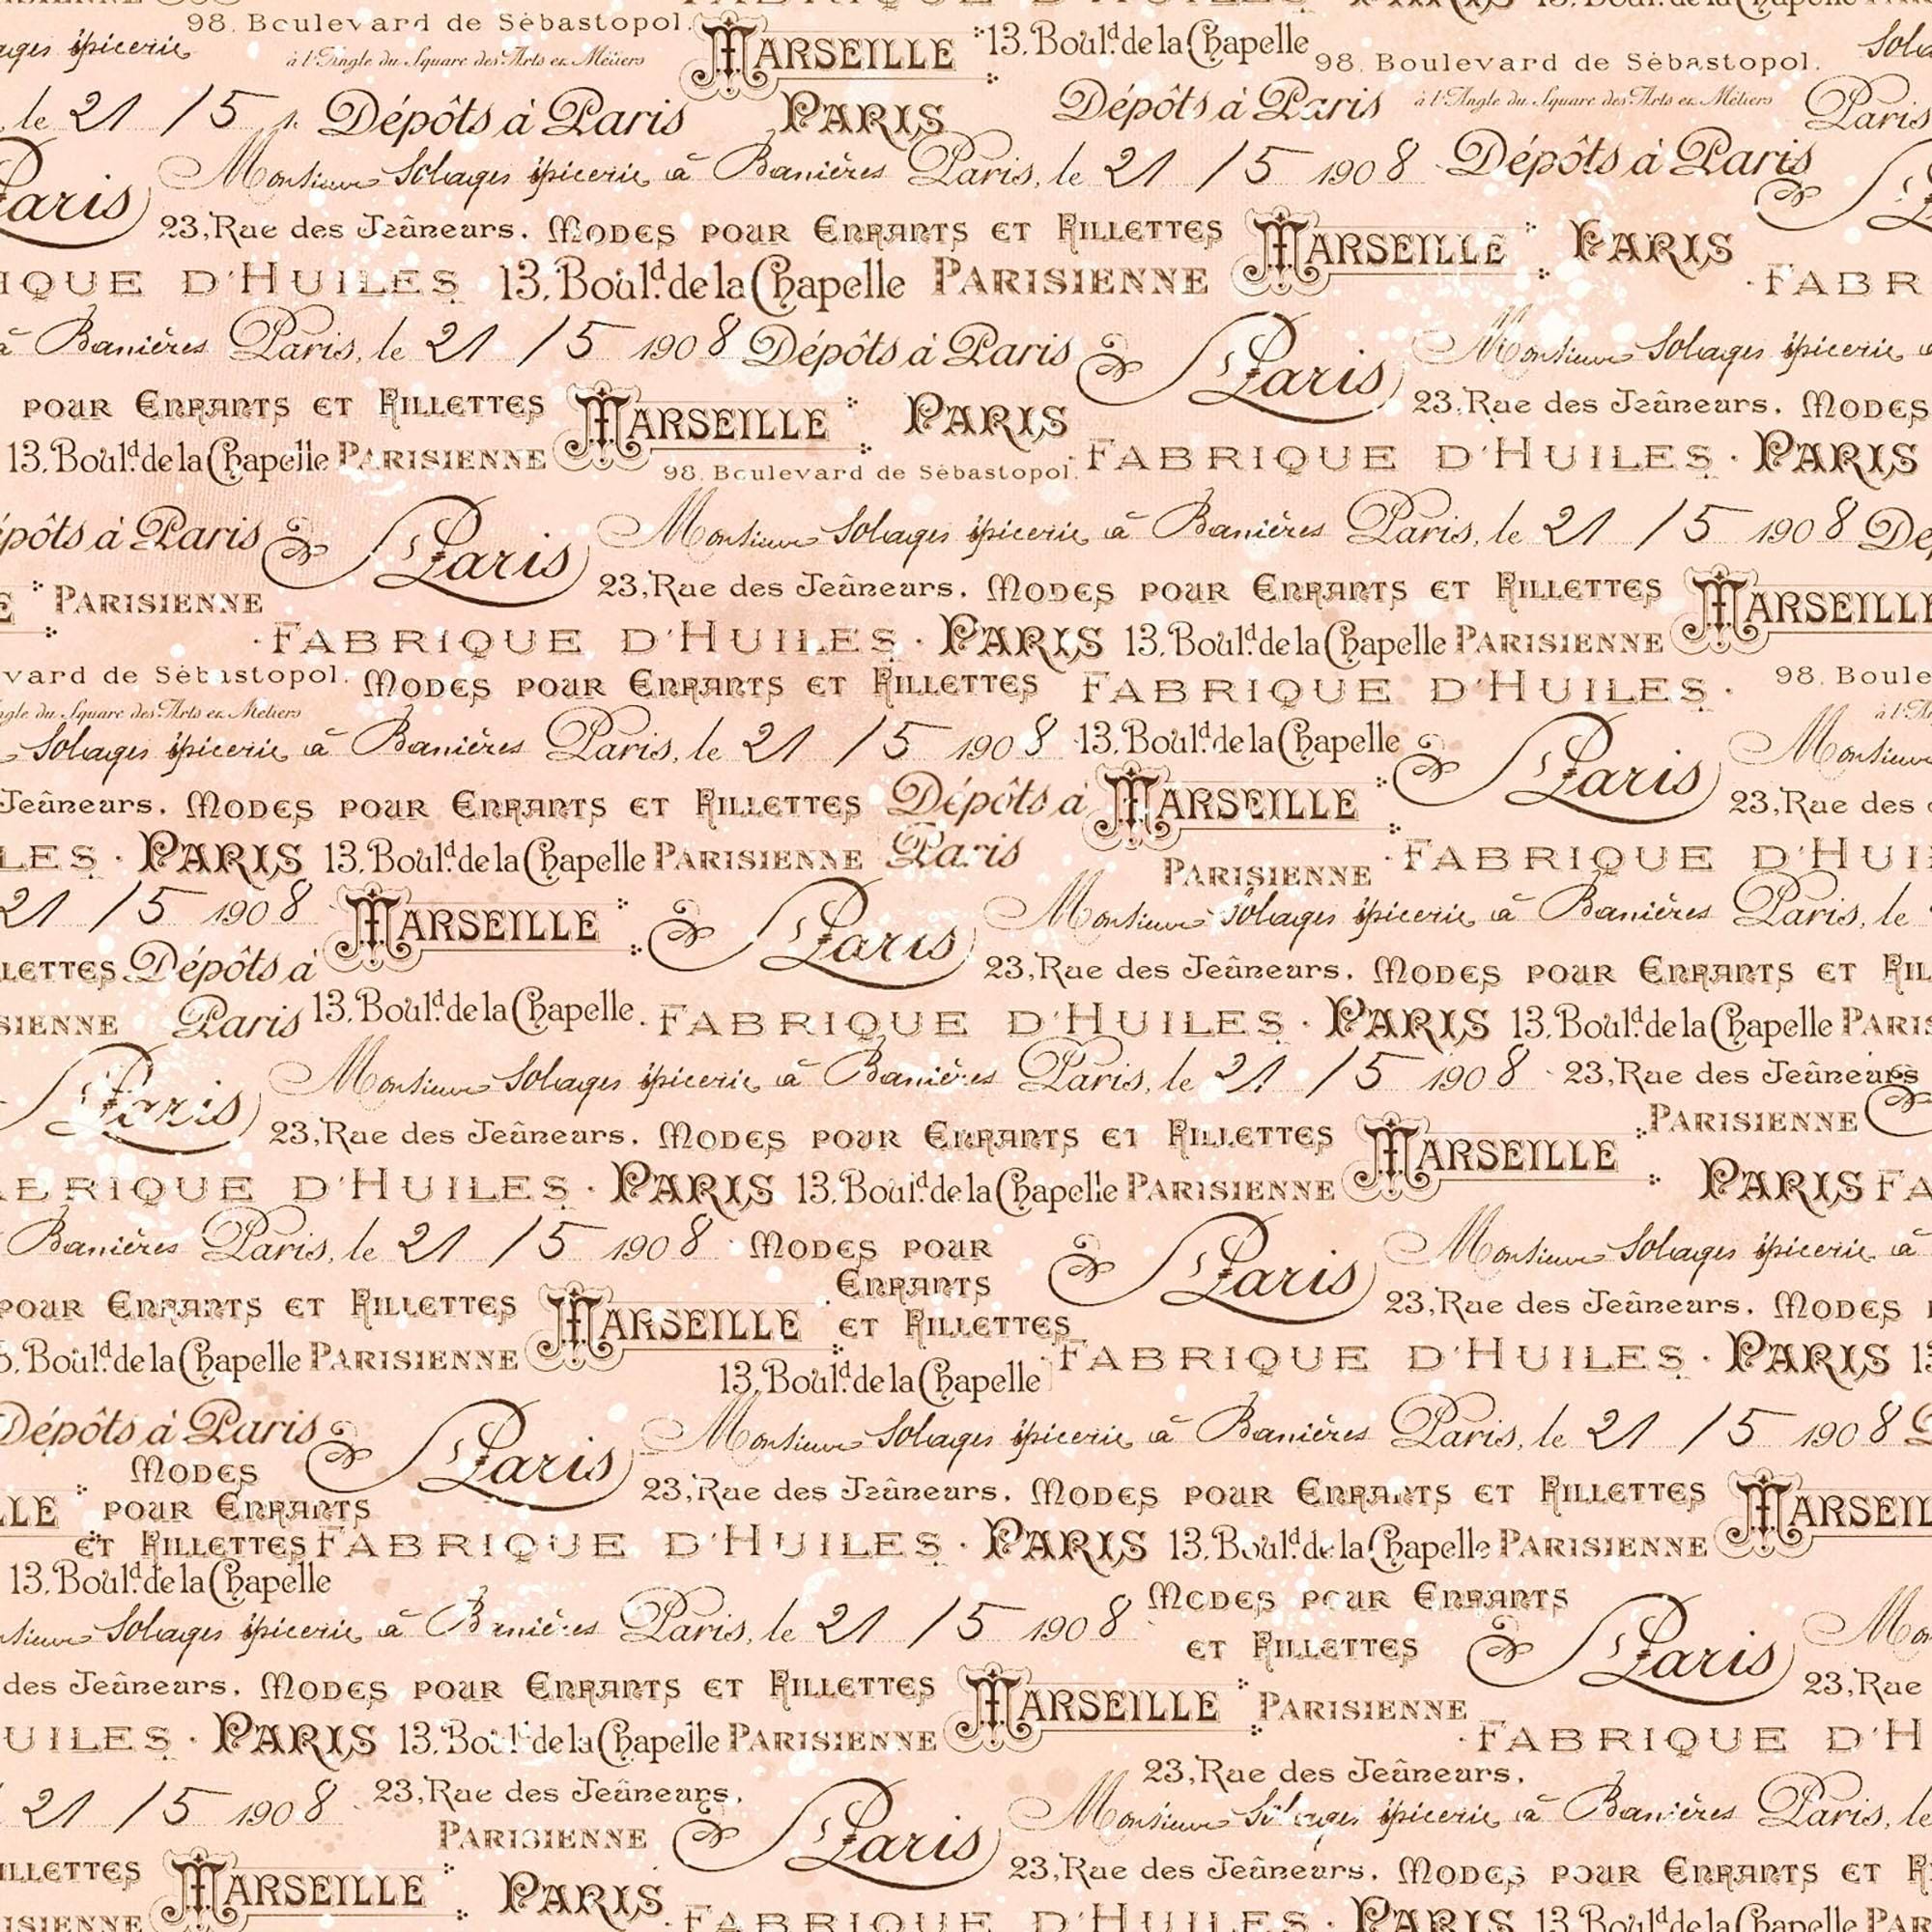 98. Boulevard de Sébastopol. MARSEILLE 13. Boul.d de la Chapelle
épicerie à l'Angle du Square des Arts et Métiers 98. Boulevard de Sébastopol.
le 21 / 5 Dépôts à Paris PARIS Dépôts à Paris à l'Angle du Square des Arts et Métiers Paris
Paris Monsieur Solages épicerie à Banières Paris, le 21 / 5 1908 Dépôts à Paris
23, Rue des Jeûneurs. MODES POUR ENFANTS ET FILLETTES MARSEILLE PARIS
D'HUILES 13. Boul.d de la Chapelle PARISIENNE
à Banières Paris, le 21 / 5 1908 Dépôts à Paris Paris Monsieur Solages épicerie
POUR ENFANTS ET FILLETTES MARSEILLE PARIS 23, Rue des Jeûneurs. MODES
13. Boul.d de la Chapelle PARISIENNE 98. Boulevard de Sébastopol. FABRIQUE D'HUILES · PARIS
à Paris Paris Monsieur Solages épicerie à Banières Paris, le 21 / 5 1908
PARISIENNE 23, Rue des Jeûneurs. MODES POUR ENFANTS ET FILLETTES MARSEILLE
· FABRIQUE D'HUILES · PARIS 13. Boul.d de la Chapelle PARISIENNE
de Sébastopol. MODES POUR ENFANTS ET FILLETTES FABRIQUE D'HUILES · 98.
du Square des Arts et Métiers
Solages épicerie à Banières Paris, le 21 / 5 1908 13. Boul.d de la Chapelle Paris Monsieur
Jeûneurs. MODES POUR ENFANTS ET FILLETTES Dépôts à MARSEILLE 23, Rue des
· PARIS 13. Boul.d de la Chapelle PARISIENNE Paris PARISIENNE · FABRIQUE
21 / 5 1908 MARSEILLE Paris Monsieur Solages épicerie à Banières Paris, le
Dépôts à 23, Rue des Jeûneurs. MODES POUR ENFANTS ET
Paris 13. Boul.d de la Chapelle · FABRIQUE D'HUILES · PARIS 13. Boul.d de la Chapelle
Paris Monsieur Solages épicerie à Banières Paris, le 21 / 5 1908 23, Rue des Jeûneurs
23, Rue des Jeûneurs. MODES POUR ENFANTS ET FILLETTES MARSEILLE PARISIENNE
D'HUILES · PARIS 13. Boul.d de la Chapelle PARISIENNE PARIS
Banières Paris, le 21 / 5 1908 MODES POUR Paris Monsieur Solages épicerie à
ENFANTS
POUR ENFANTS ET FILLETTES MARSEILLE ET FILLETTES 23, Rue des Jeûneurs. MODES
Boul.d de la Chapelle PARISIENNE 13. Boul.d de la Chapelle FABRIQUE D'HUILES · PARIS
Dépôts à Paris Paris Monsieur Solages épicerie à Banières Paris, le 21 / 5 1908
MODES
POUR ENFANTS 23, Rue des Jeûneurs. MODES POUR ENFANTS ET FILLETTES
ET FILLETTES FABRIQUE D'HUILES · PARIS 13. Boul.d de la Chapelle PARISIENNE
13. Boul.d de la Chapelle
Solages épicerie à Banières Paris, le 21 / 5 1908 MODES POUR ENFANTS Paris
ET FILLETTES
des Jeûneurs. MODES POUR ENFANTS ET FILLETTES MARSEILLE PARISIENNE 23, Rue
· PARIS 13. Boul.d de la Chapelle PARISIENNE · FABRIQUE
21 / 5 1908 23, Rue des Jeûneurs. 23, Rue des Jeûneurs.
PARISIENNE Paris Monsieur Solages épicerie à Banières Paris, le
MARSEILLE PARIS 23, Rue des Jeûneurs. MODES POUR ENFANTS ET
· FABRIQUE D'HUILES · PARIS 13. Boul.d de la Chapelle